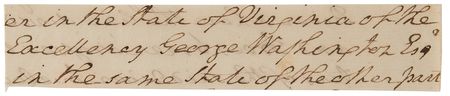 er in the State of Virginia of the
Excellency George Washington Esqr
in the same State of the other part